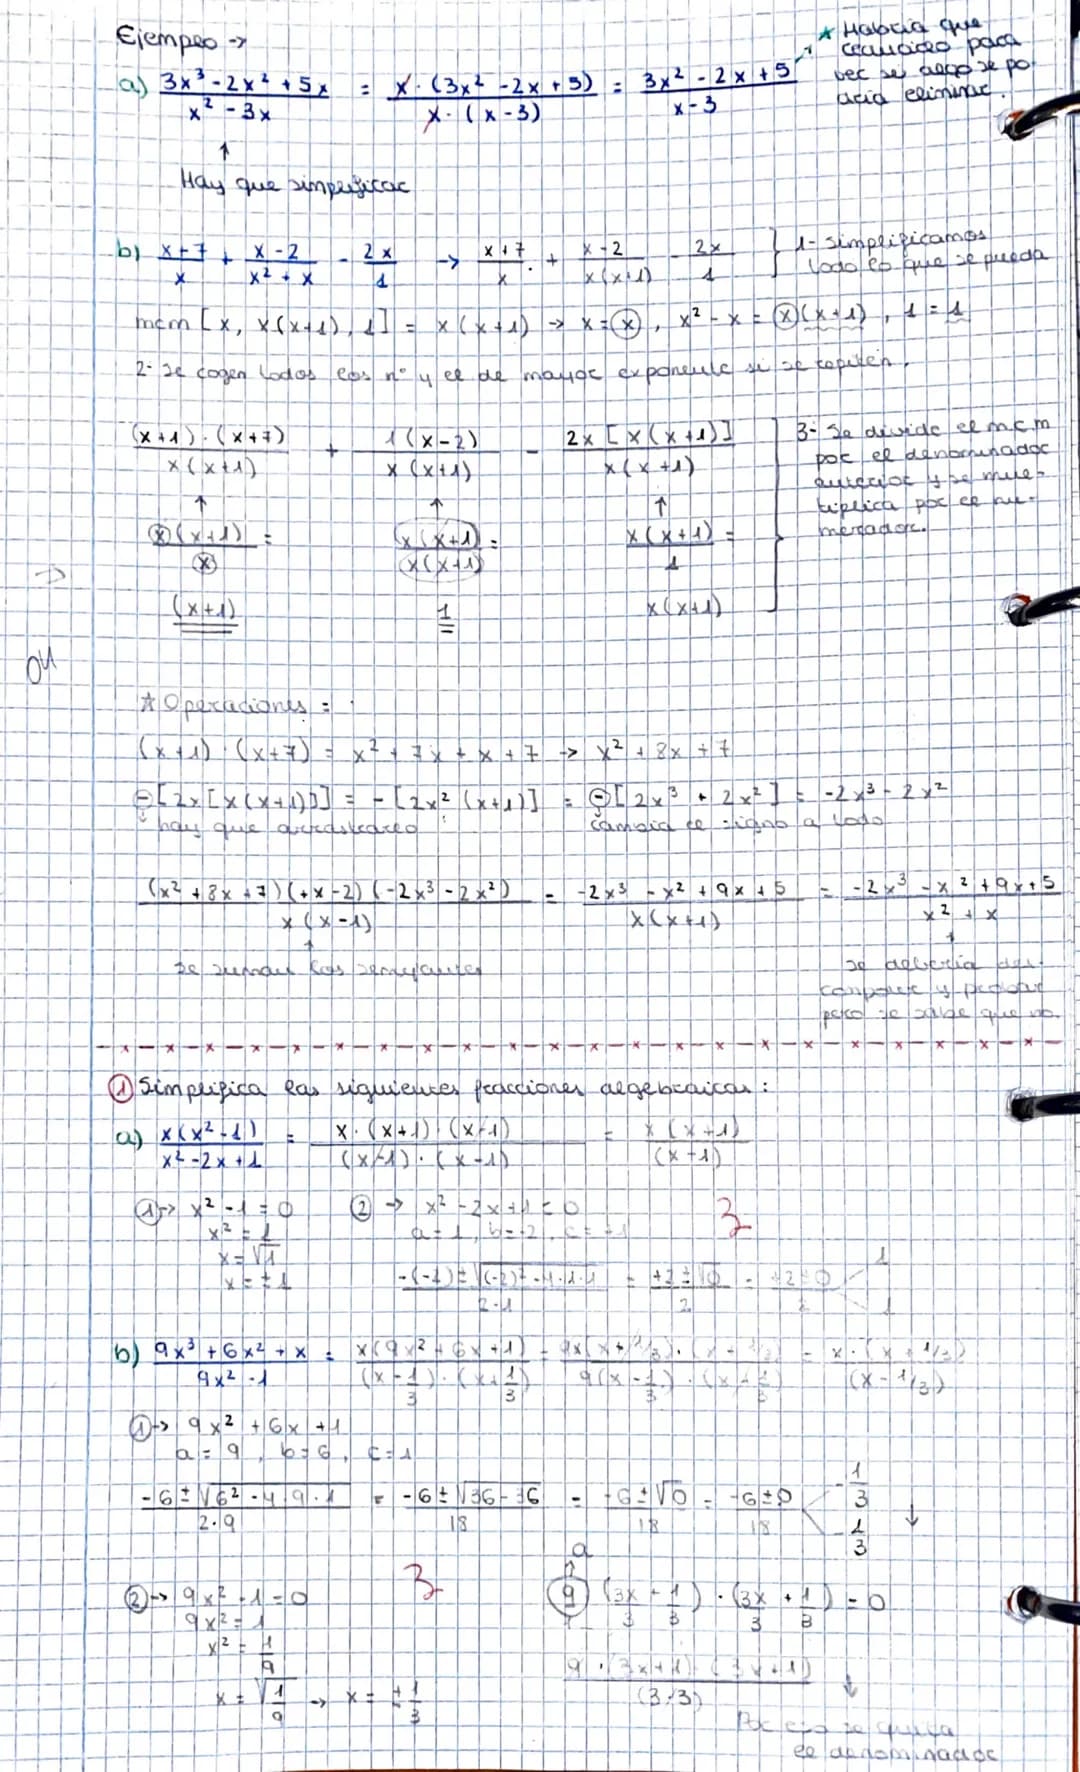 Ejemplo →
a) (3x³ - 2x² + 5x)/(x² - 3x) = (x · (3x² - 2x + 5))/(x · (x - 3)) = (3x² - 2x + 5)/(x - 3)
* Habría que
para
ver si algo se po-
día eliminar.
↑
Hay que simplificar
b) (x + 7)/x + (x - 2)/(x² + x) - 2x/1 → (x + 7)/x + (x - 2)/(x(x+1)) - 2x/1
1- simplificamos
todo lo que se pueda
mcm [x, x(x+1), 1] = x(x+1) → x = x, x² - x = x(x+1), 1 = 1
2- Se cogen todos los nº y el de mayor exponente si se repiten.
((x+1) · (x+7))/(x(x+1)) + (1(x-2))/(x(x+1)) - (2x[x(x+1)])/(x(x+1))
3- Se divide el m.c.m
por el denominador
anterior y se mul-
tiplica por el nu-
merador.
↑ ↑ ↑
(x(x+1))/x = (x(x+1))/(x(x+1)) = (x(x+1))/1 =
(x+1) 1 x(x+1)
* Operaciones =
(x+1) · (x+7) = x² + 7x + x + 7 → x² + 8x + 7
-[2x[x(x+1)]] = -[2x²(x+1)] = -[2x³ + 2x²] = -2x³ - 2x²
hay que arrastrarlo cambia el signo a todo
((x² + 8x + 7)(+x - 2)(-2x³ - 2x²))/(x(x-1)) = (-2x³ - x² + 9x + 5)/(x(x+1)) = (-2x³ - x² + 9x + 5)/(x² + x)
↑
se suman los semejantes
se debería des-
componer y probar
pero se sabe que no.
① Simplifica las siguientes fracciones algebraicas:
a) (x(x² - 1))/(x² - 2x + 1) = (x · (x+1) · (x-1))/((x-1) · (x-1)) = (x(x+1))/(x-1)
① → x² - 1 = 0 ② → x² - 2x + 1 = 0
x² = 1 a = 1, b = -2, c = +1
x = √1
x = ±1 (-(-2) ± √((-2)² - 4·1·1))/(2·1) = (+2 ± √0)/2 = (+2 ± 0)/2 < 1 1
3
b) (9x³ + 6x² + x)/(9x² - 1) = (x(9x² + 6x + 1))/((x - 1/3) · (x + 1/3)) = (9x(x + 1/3) · (x + 1/3))/(9(x - 1/3) · (x + 1/3)) = (x · (x + 1/3))/(x - 1/3)
① → 9x² + 6x + 1
a = 9, b = 6, c = 1
(-6 ± √(6² - 4·9·1))/(2·9) = (-6 ± √(36 - 36))/18 = (-6 ± √0)/18 = (-6 ± 0)/18 < -1/3 -1/3 ↓
② → 9x² - 1 = 0
9x² = 1
x² = 1/9
x = √(1/9) → x = ±1/3
3
a
9 (3x/3 - 1/3) · (3x/3 + 1/3) = 0
(9 · (3x+1) · (3x+1))/(3·3) ↓
Por eso se quita
el denominador